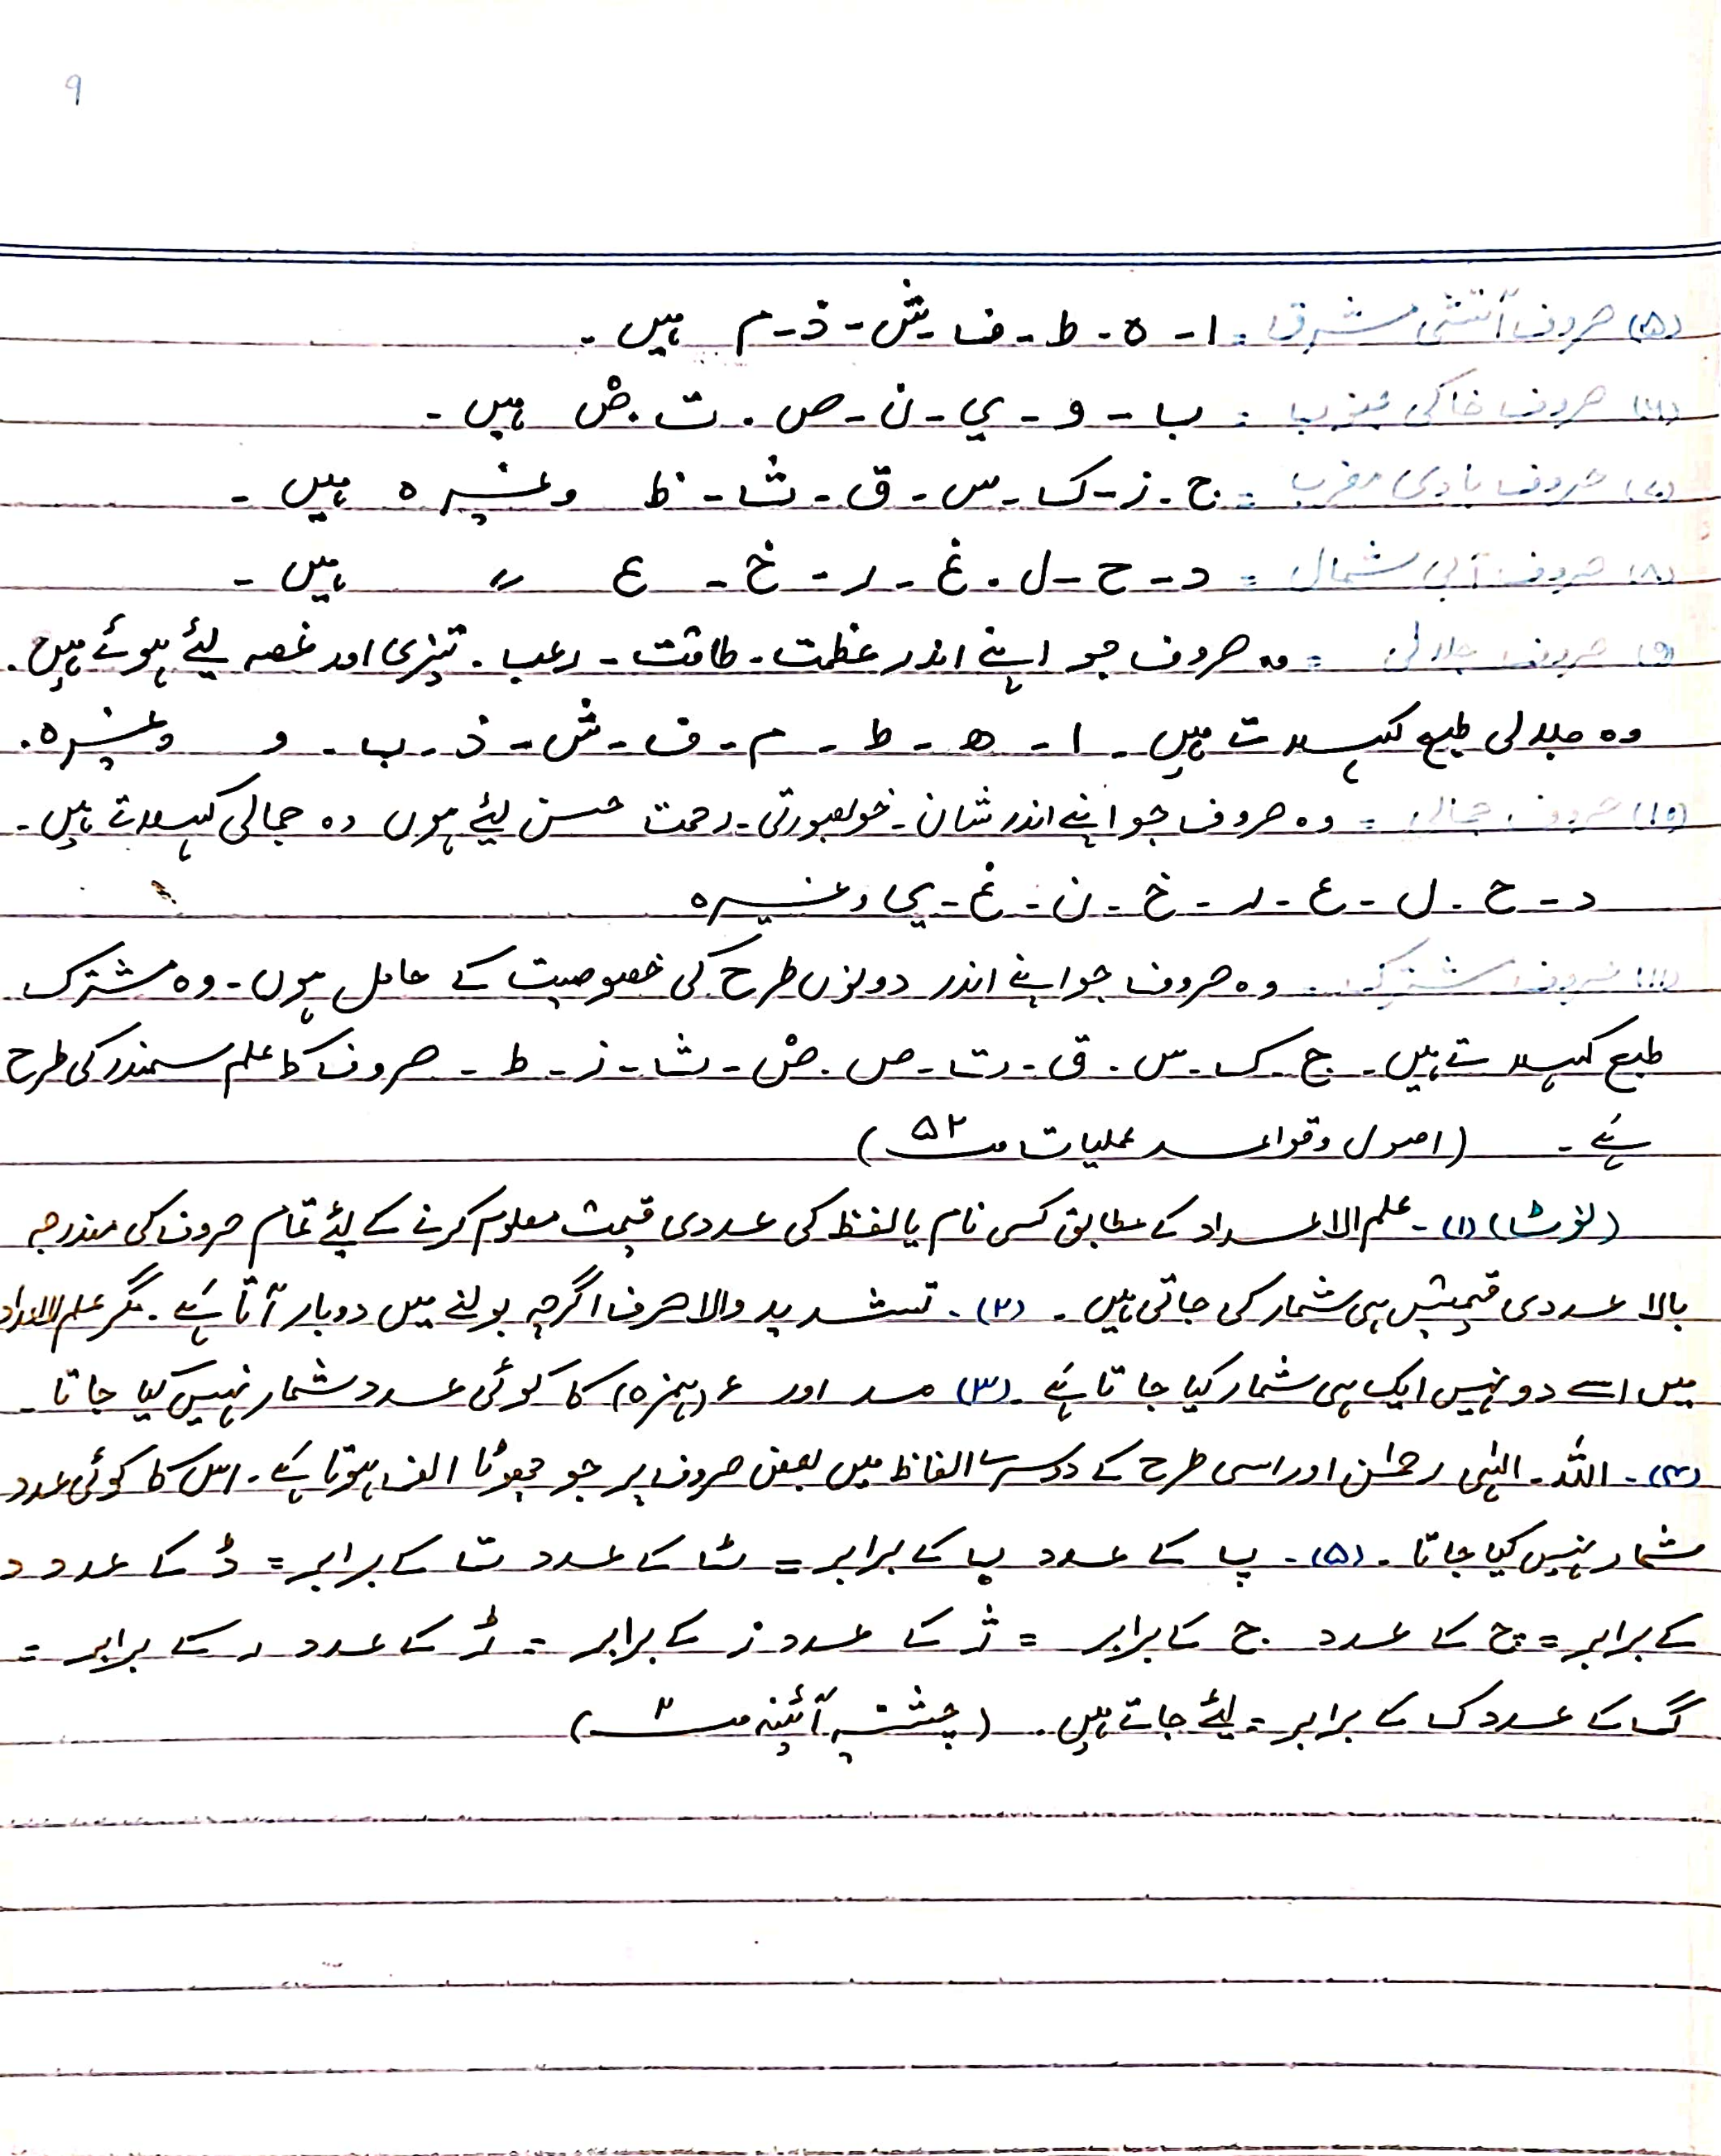 ۹
(۵) حروف آتشی مشرق = ا - ہ - ط - ف - ش - ذ - م ہیں -
(۶) حروف خاکی جنوب = ب - و - ي - ن - ص - ت - ض ہیں -
(۷) حروف بادی مغرب = ج - ز - ک - س - ق - ث - ظ وغیرہ ہیں -
(۸) حروف آبی شمال = د - ح - ل - غ - ر - خ - ع " ہیں -
(۹) حروف جلالی = وہ حروف جو اپنے اندر عظمت - طاقت - رعب - تیزی اور غصہ لیئے ہوئے ہیں -
وہ جلالی طبع کہلاتے ہیں - ا - ھ - ط - م - ف - ش - ذ - ب - و وغیرہ -
(۱۰) حروف جمالی = وہ حروف جو اپنے اندر شان - خوبصورتی - رحمت حسن لیئے ہوں وہ جمالی کہلاتے ہیں -
د - ح - ل - ع - ر - خ - ن - غ - ي وغیرہ
(۱۱) حروف مشترک = وہ حروف جو اپنے اندر دونوں طرح کی خصوصیت کے حامل ہوں - وہ مشترک
طبع کہلاتے ہیں - ج - ک - س - ق - ت - ص - ض - ث - ز - ط - حروف کا علم سمندر کی طرح
ہے - (اصول وقواعد عملیات صـ ۵۲)
(نوٹ) (۱) - علم الاعداد کے مطابق کسی نام یا لفظ کی عددی قیمت معلوم کرنے کے لیئے تمام حروف کی مندرجہ
بالا عددی قیمتیں ہی شمار کی جاتی ہیں - (۲) - تشدید والا حرف اگرچہ بولنے میں دوبار آتا ہے - مگر علم الاعداد
میں اسے دو نہیں ایک ہی شمار کیا جاتا ہے - (۳) مد اور ء (ہمزہ) کا کوئی عدد شمار نہیں کیا جاتا -
(۴) - اللّٰہ - الٰہی رحمٰن اور اسی طرح کے دوسرے الفاظ میں بعض حروف پر جو چھوٹا الف ہوتا ہے - اس کا کوئی عدد
شمار نہیں کیا جاتا - (۵) - پ کے عدد ب کے برابر = ٹ کے عدد ت کے برابر = ڈ کے عدد د
کے برابر = چ کے عدد ج کے برابر = ژ کے عدد ز کے برابر = ڑ کے عدد ر کے برابر =
گ کے عدد ک کے برابر = لیئے جاتے ہیں - (چشتیہ آئینہ صـ ۲)